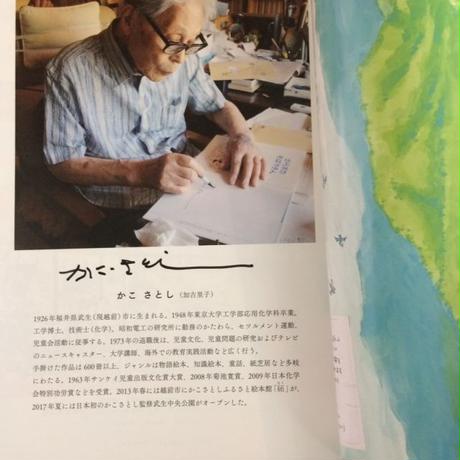 かこ・さとし
かこ さとし (加古里子)
1926年福井県武生(現越前)市に生まれる。1948年東京大学工学部応用化学科卒業。
工学博士、技術士(化学)。昭和電工の研究所に勤務のかたわら、セツルメント運動、
児童会活動に従事する。1973年の退職後は、児童文化、児童問題の研究およびテレビ
のニュースキャスター、大学講師、海外での教育実践活動など広く行う。
手掛けた作品は600冊以上、ジャンルは物語絵本、知識絵本、童話、紙芝居など多岐
にわたる。1963年サンケイ児童出版文化賞大賞、2008年菊池寛賞、2009年日本化学
会特別功労賞などを受賞。2013年春には越前市にかこさとしふるさと絵本館「砳」が、
2017年夏には日本初のかこさとし監修武生中央公園がオープンした。